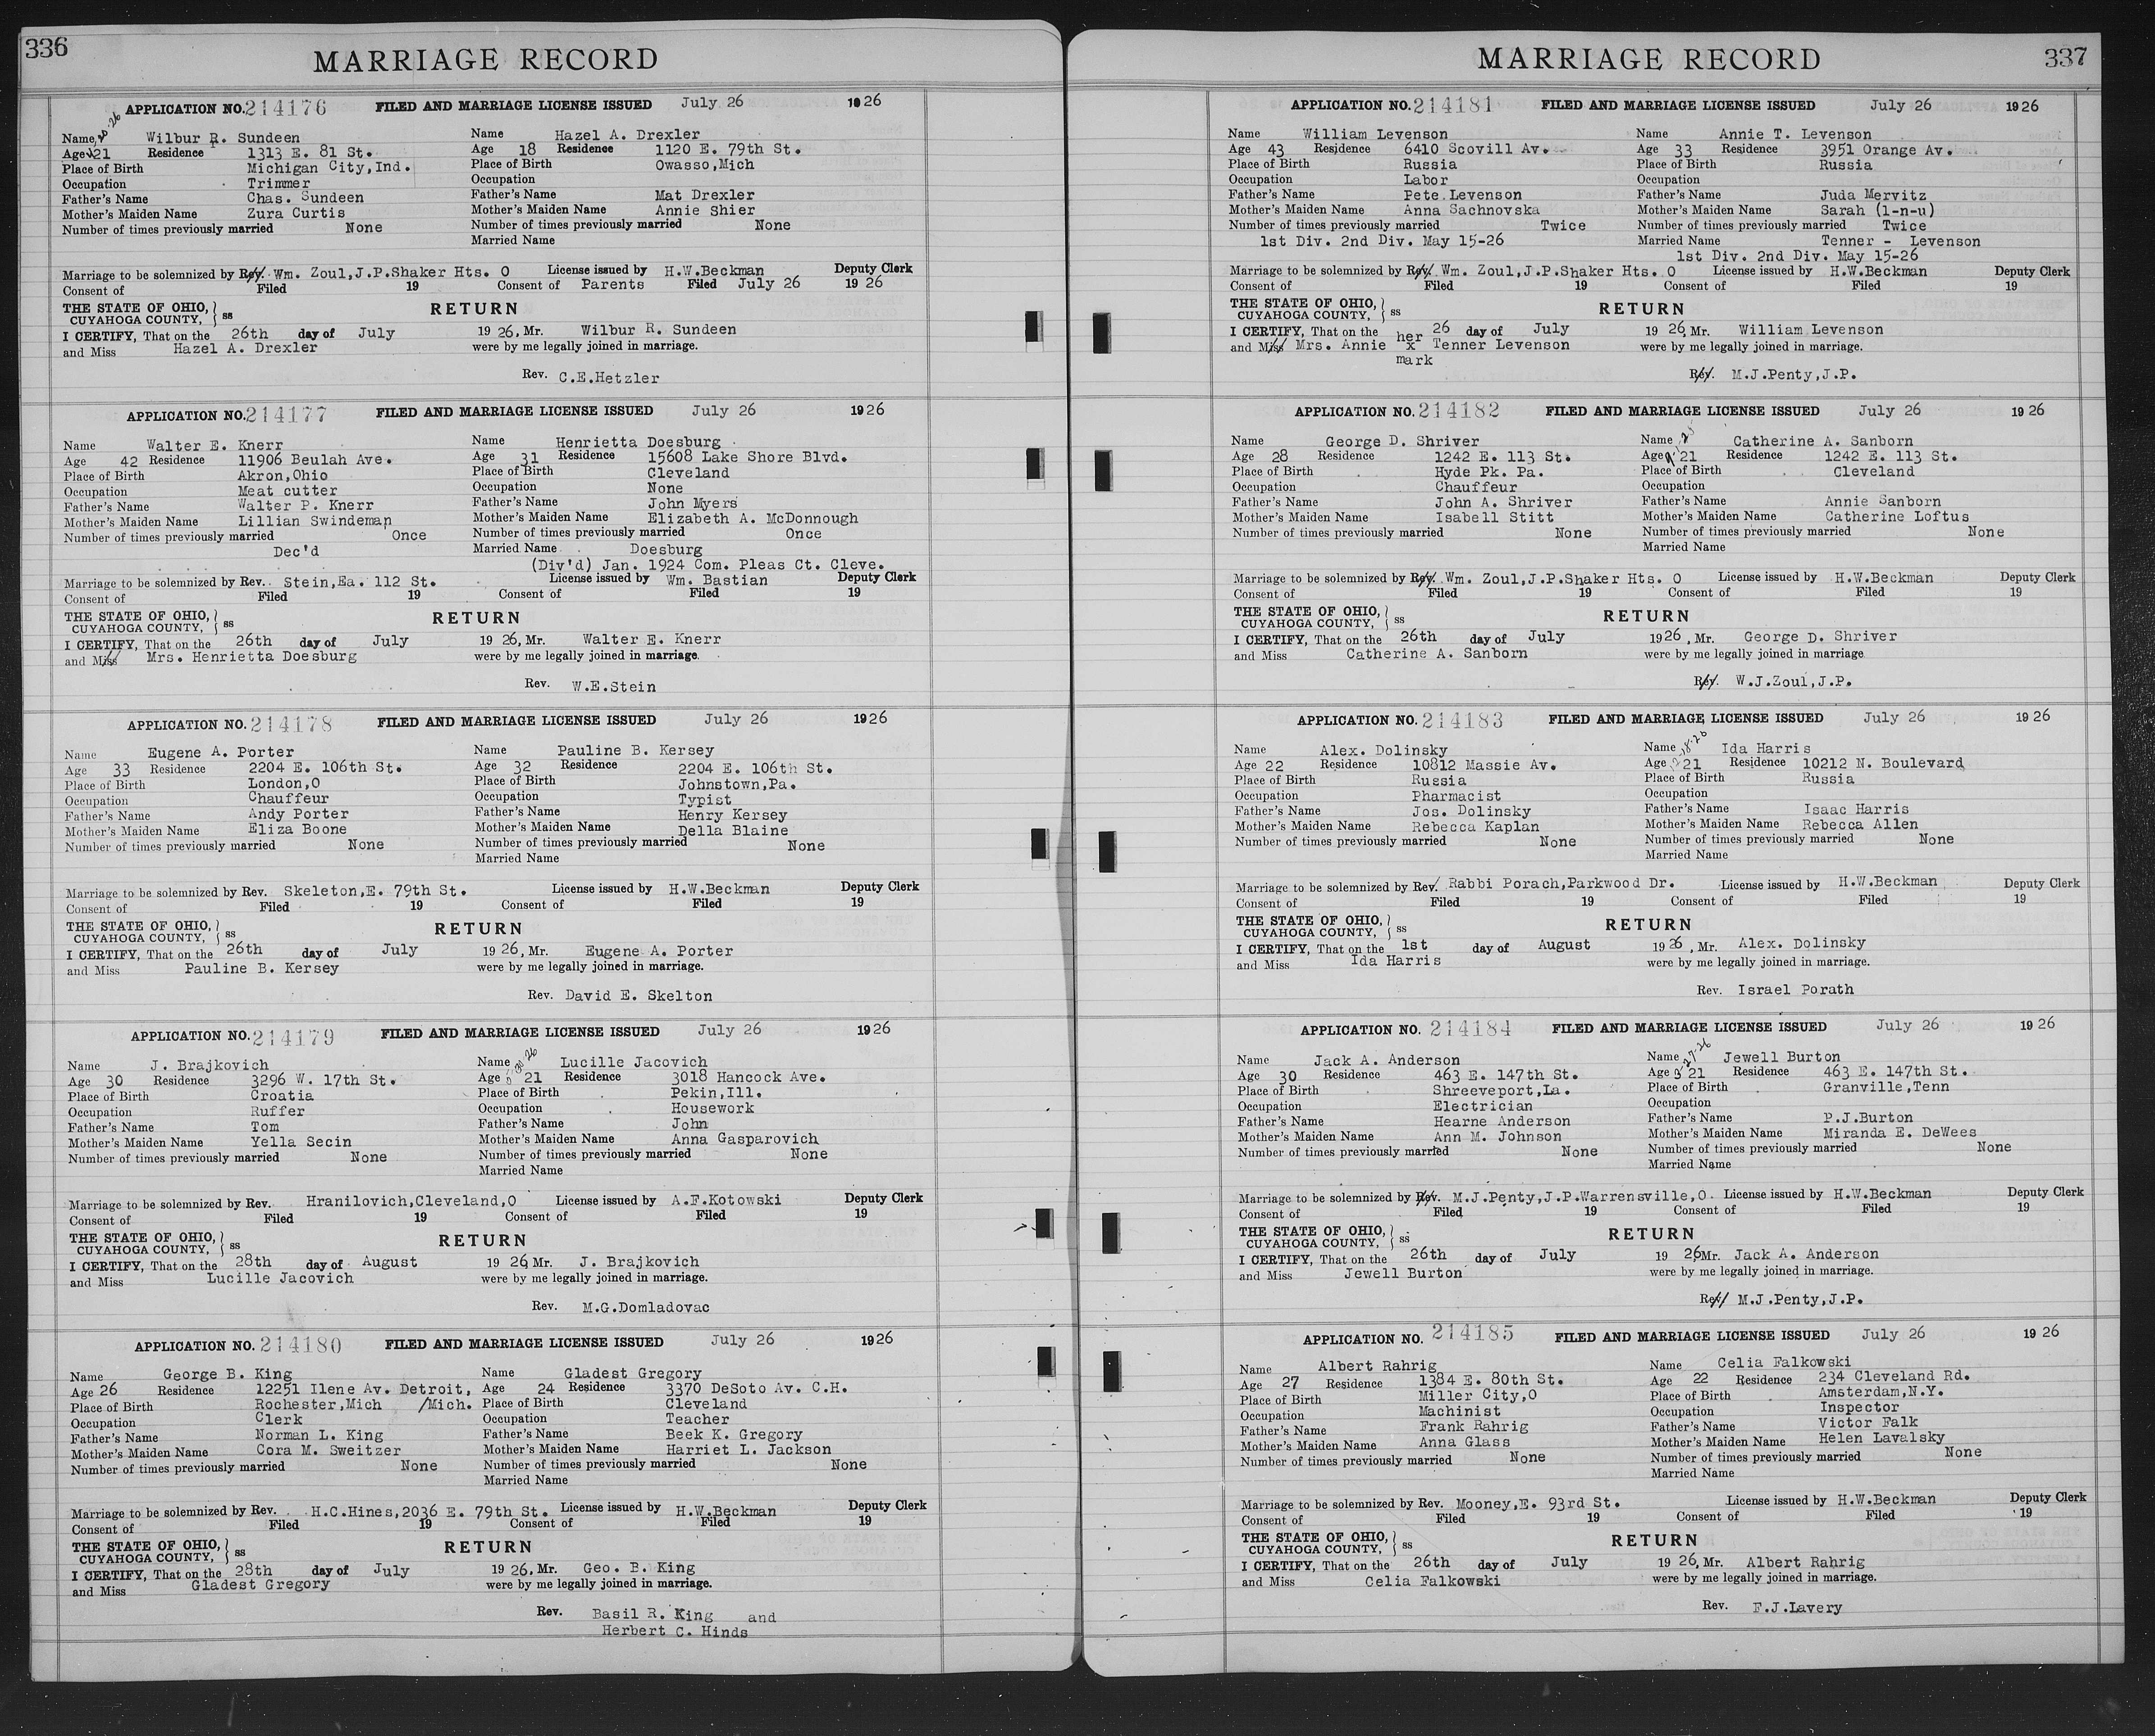 336
MARRIAGE RECORD
APPLICATION NO. 214176 FILED AND MARRIAGE LICENSE ISSUED July 26 1926
Name Wilbur R. Sundeen Name Hazel A. Drexler
Age 21 Residence 1313 E. 81 St. Age 18 Residence 1120 E. 79th St.
Place of Birth Michigan City,Ind. Place of Birth Owasso,Mich
Occupation Trimmer Occupation
Father's Name Chas. Sundeen Father's Name Mat Drexler
Mother's Maiden Name Zura Curtis Mother's Maiden Name Annie Shier
Number of times previously married None Number of times previously married None
Married Name
Marriage to be solemnized by Rev. Wm. Zoul,J.P.Shaker Hts. O License issued by H.W.Beckman Deputy Clerk
Consent of Filed 19 Consent of Parents Filed July 26 19 26
THE STATE OF OHIO, CUYAHOGA COUNTY, } ss RETURN
I CERTIFY, That on the 26th day of July 19 26, Mr. Wilbur R. Sundeen
and Miss Hazel A. Drexler were by me legally joined in marriage.
Rev. C.E.Hetzler
APPLICATION NO. 214177 FILED AND MARRIAGE LICENSE ISSUED July 26 1926
Name Walter E. Knerr Name Henrietta Doesburg
Age 42 Residence 11906 Beulah Ave. Age 31 Residence 15608 Lake Shore Blvd.
Place of Birth Akron,Ohio Place of Birth Cleveland
Occupation Meat cutter Occupation None
Father's Name Walter P. Knerr Father's Name John Myers
Mother's Maiden Name Lillian Swindeman Mother's Maiden Name Elizabeth A. McDonnough
Number of times previously married Once Number of times previously married Once
Dec'd Married Name Doesburg
(Div'd) Jan. 1924 Com. Pleas Ct. Cleve.
Marriage to be solemnized by Rev. Stein,Ea. 112 St. License issued by Wm. Bastian Deputy Clerk
Consent of Filed 19 Consent of Filed 19
THE STATE OF OHIO, CUYAHOGA COUNTY, } ss RETURN
I CERTIFY, That on the 26th day of July 19 26, Mr. Walter E. Knerr
and Miss Mrs. Henrietta Doesburg were by me legally joined in marriage.
Rev. W.E.Stein
APPLICATION NO. 214178 FILED AND MARRIAGE LICENSE ISSUED July 26 1926
Name Eugene A. Porter Name Pauline B. Kersey
Age 33 Residence 2204 E. 106th St. Age 32 Residence 2204 E. 106th St.
Place of Birth London,O Place of Birth Johnstown,Pa.
Occupation Chauffeur Occupation Typist
Father's Name Andy Porter Father's Name Henry Kersey
Mother's Maiden Name Eliza Boone Mother's Maiden Name Della Blaine
Number of times previously married None Number of times previously married None
Married Name
Marriage to be solemnized by Rev. Skeleton,E. 79th St. License issued by H.W.Beckman Deputy Clerk
Consent of Filed 19 Consent of Filed 19
THE STATE OF OHIO, CUYAHOGA COUNTY, } ss RETURN
I CERTIFY, That on the 26th day of July 19 26, Mr. Eugene A. Porter
and Miss Pauline B. Kersey were by me legally joined in marriage.
Rev. David E. Skelton
APPLICATION NO. 214179 FILED AND MARRIAGE LICENSE ISSUED July 26 1926
Name J. Brajkovich Name Lucille Jacovich
Age 30 Residence 3296 W. 17th St. Age 21 Residence 3018 Hancock Ave.
Place of Birth Croatia Place of Birth Pekin,Ill.
Occupation Ruffer Occupation Housework
Father's Name Tom Father's Name John
Mother's Maiden Name Yella Secin Mother's Maiden Name Anna Gasparovich
Number of times previously married None Number of times previously married None
Married Name
Marriage to be solemnized by Rev. Hranilovich,Cleveland,O License issued by A.F.Kotowski Deputy Clerk
Consent of Filed 19 Consent of Filed 19
THE STATE OF OHIO, CUYAHOGA COUNTY, } ss RETURN
I CERTIFY, That on the 28th day of August 19 26, Mr. J. Brajkovich
and Miss Lucille Jacovich were by me legally joined in marriage.
Rev. M.G.Domladovac
APPLICATION NO. 214180 FILED AND MARRIAGE LICENSE ISSUED July 26 1926
Name George B. King Name Gladest Gregory
Age 26 Residence 12251 Ilene Av. Detroit, Age 24 Residence 3370 DeSoto Av. C.H.
Place of Birth Rochester,Mich /Mich. Place of Birth Cleveland
Occupation Clerk Occupation Teacher
Father's Name Norman L. King Father's Name Beek K. Gregory
Mother's Maiden Name Cora M. Sweitzer Mother's Maiden Name Harriet L. Jackson
Number of times previously married None Number of times previously married None
Married Name
Marriage to be solemnized by Rev. H.C.Hines,2036 E. 79th St. License issued by H.W.Beckman Deputy Clerk
Consent of Filed 19 Consent of Filed 19
THE STATE OF OHIO, CUYAHOGA COUNTY, } ss RETURN
I CERTIFY, That on the 28th day of July 19 26, Mr. Geo. B. King
and Miss Gladest Gregory were by me legally joined in marriage.
Rev. Basil R. King and
Herbert C. Hinds
MARRIAGE RECORD
337
APPLICATION NO. 214181 FILED AND MARRIAGE LICENSE ISSUED July 26 1926
Name William Levenson Name Annie T. Levenson
Age 43 Residence 6410 Scovill Av. Age 33 Residence 3951 Orange Av.
Place of Birth Russia Place of Birth Russia
Occupation Labor Occupation
Father's Name Pete Levenson Father's Name Juda Mervitz
Mother's Maiden Name Anna Sachnovska Mother's Maiden Name Sarah (l-n-u)
Number of times previously married Twice Number of times previously married Twice
1st Div. 2nd Div. May 15-26 Married Name Tenner - Levenson
1st Div. 2nd Div. May 15-26
Marriage to be solemnized by Rev. Wm. Zoul,J.P.Shaker Hts. O License issued by H.W.Beckman Deputy Clerk
Consent of Filed 19 Consent of Filed 19
THE STATE OF OHIO, CUYAHOGA COUNTY, } ss RETURN
I CERTIFY, That on the 26 day of July 19 26, Mr. William Levenson
her
and Miss Mrs. Annie x Tenner Levenson were by me legally joined in marriage.
mark
Rev. M.J.Penty,J.P.
APPLICATION NO. 214182 FILED AND MARRIAGE LICENSE ISSUED July 26 1926
Name George D. Shriver Name Catherine A. Sanborn
Age 28 Residence 1242 E. 113 St. Age 21 Residence 1242 E. 113 St.
Place of Birth Hyde Pk. Pa. Place of Birth Cleveland
Occupation Chauffeur Occupation
Father's Name John A. Shriver Father's Name Annie Sanborn
Mother's Maiden Name Isabell Stitt Mother's Maiden Name Catherine Loftus
Number of times previously married None Number of times previously married None
Married Name
Marriage to be solemnized by Rev. Wm. Zoul,J.P.Shaker Hts. O License issued by H.W.Beckman Deputy Clerk
Consent of Filed 19 Consent of Filed 19
THE STATE OF OHIO, CUYAHOGA COUNTY, } ss RETURN
I CERTIFY, That on the 26th day of July 1926, Mr. George D. Shriver
and Miss Catherine A. Sanborn were by me legally joined in marriage
Rev. W.J.Zoul,J.P.
APPLICATION NO. 214183 FILED AND MARRIAGE LICENSE ISSUED July 26 1926
Name Alex. Dolinsky Name Ida Harris
Age 22 Residence 10812 Massie Av. Age 21 Residence 10212 N. Boulevard
Place of Birth Russia Place of Birth Russia
Occupation Pharmacist Occupation
Father's Name Jos. Dolinsky Father's Name Isaac Harris
Mother's Maiden Name Rebecca Kaplan Mother's Maiden Name Rebecca Allen
Number of times previously married None Number of times previously married None
Married Name
Marriage to be solemnized by Rev. Rabbi Porach,Parkwood Dr. License issued by H.W.Beckman Deputy Clerk
Consent of Filed 19 Consent of Filed 19
THE STATE OF OHIO, CUYAHOGA COUNTY, } ss RETURN
I CERTIFY, That on the 1st day of August 19 26, Mr. Alex. Dolinsky
and Miss Ida Harris were by me legally joined in marriage.
Rev. Israel Porath
APPLICATION NO. 214184 FILED AND MARRIAGE LICENSE ISSUED July 26 1926
Name Jack A. Anderson Name Jewell Burton
Age 30 Residence 463 E. 147th St. Age 21 Residence 463 E. 147th St.
Place of Birth Shreeveport,La. Place of Birth Granville,Tenn
Occupation Electrician Occupation
Father's Name Hearne Anderson Father's Name P.J.Burton
Mother's Maiden Name Ann M. Johnson Mother's Maiden Name Miranda E. DeWees
Number of times previously married None Number of times previously married None
Married Name
Marriage to be solemnized by Rev. M.J.Penty,J.P.Warrensville,O. License issued by H.W.Beckman Deputy Clerk
Consent of Filed 19 Consent of Filed 19
THE STATE OF OHIO, CUYAHOGA COUNTY, } ss RETURN
I CERTIFY, That on the 26th day of July 19 26 Mr. Jack A. Anderson
and Miss Jewell Burton were by me legally joined in marriage.
Rev. M.J.Penty,J.P.
APPLICATION NO. 214185 FILED AND MARRIAGE LICENSE ISSUED July 26 1926
Name Albert Rahrig Name Celia Falkowski
Age 27 Residence 1384 E. 80th St. Age 22 Residence 234 Cleveland Rd.
Place of Birth Miller City,O Place of Birth Amsterdam,N.Y.
Occupation Machinist Occupation Inspector
Father's Name Frank Rahrig Father's Name Victor Falk
Mother's Maiden Name Anna Glass Mother's Maiden Name Helen Lavalsky
Number of times previously married None Number of times previously married None
Married Name
Marriage to be solemnized by Rev. Mooney,E. 93rd St. License issued by H.W.Beckman Deputy Clerk
Consent of Filed 19 Consent of Filed 19
THE STATE OF OHIO, CUYAHOGA COUNTY, } ss RETURN
I CERTIFY, That on the 26th day of July 19 26, Mr. Albert Rahrig
and Miss Celia Falkowski were by me legally joined in marriage.
Rev. F.J.Lavery